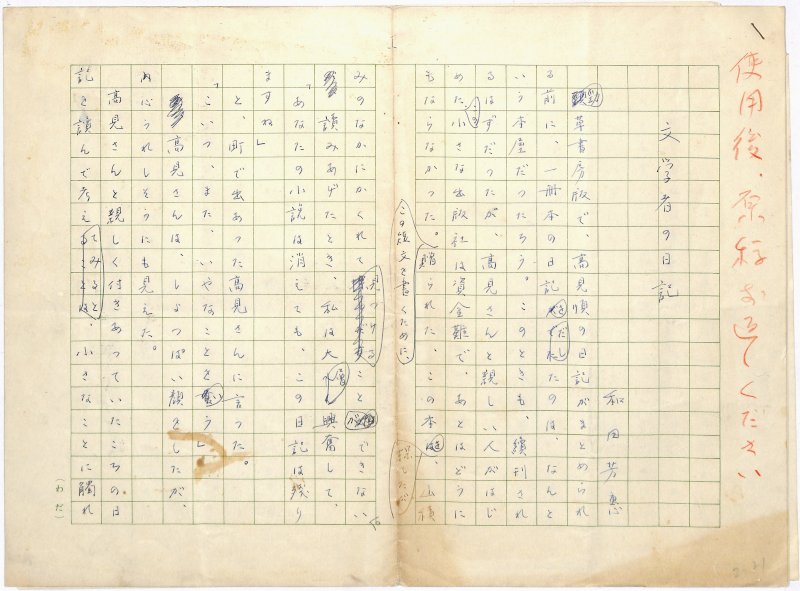 使用後、原稿お返しください
文学者の日記
和田芳恵
勁草書房版で、高見順の日記がまとめられ
る前に、一冊本の日記をだしたのは、なんと
いう本屋だったろう。このときも、続刊され
るはずだったが、高見さんと親しい人がはじ
めた小さな出版社は資金難で、あとはどうに
もならなかった。贈られた、この本を、山積
この短文を書くために、
探したが
みのなかにかくれて見つけることができない
讀みあげたとき、私は大層興奮して、
「あなたの小説は消えても、この日記は残り
ますね」
と、町で出あった高見さんに言った。
「こいつ、また、いやなことを言う」
高見さんは、しょっぱい顔をしたが、
内心うれしそうにも見えた。
高見さんと親しく付きあっていたころの日
記を讀んで考えてみると、小さなことに觸れ
(わだ)